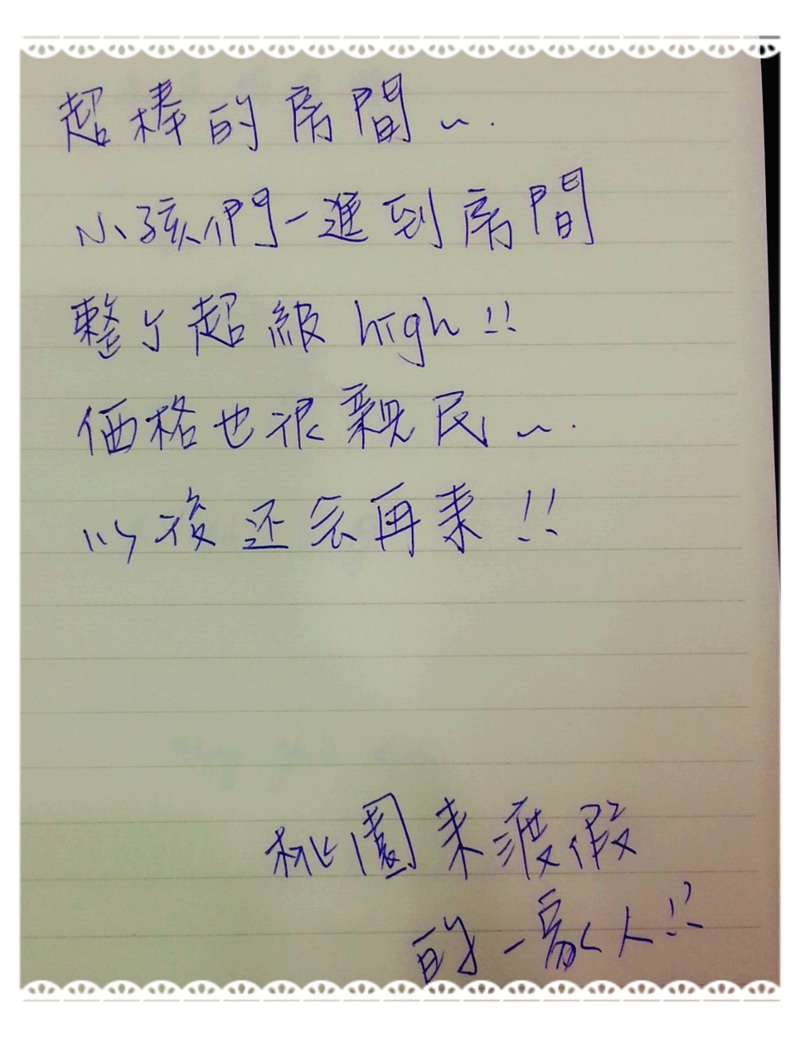 超棒的房間~.
小孩們一進到房間
整个超級 high!!
価格也很親民~.
以後还会再来!!
桃園来渡假
的一家人!!